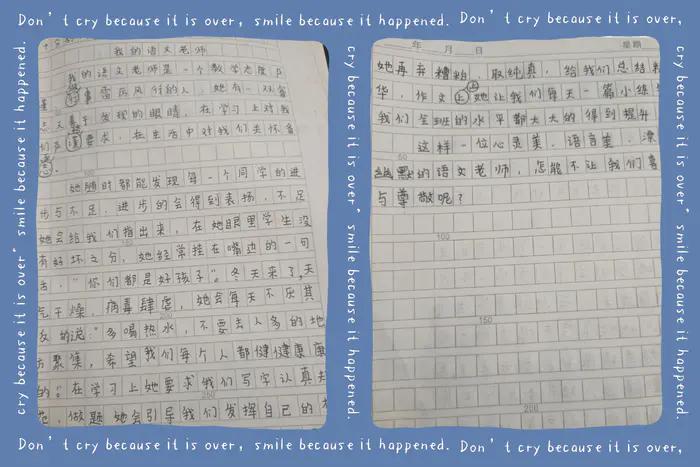 Don't cry because it is over, smile because it happened. Don't cry because it is over,
cry because it is over" smile because it happened.
我的语文老师
我的语文老师是一个教学态度
行事雷厉风行的人,她有一双
善于发现的眼睛,在学习上对我
们严谨要求,在生活中对我们关怀备
她随时都能发现每一个同学的进
步与不足,进步的会得到表扬,不足
她会给我们指出来,在她眼里学生没
有好坏之分,她经常挂在嘴边的一句
话,"你们都是好孩子"。冬天来了,天
气干燥,病毒肆虐,她会每天不厌其
的说:"多喝热水,不要去人多的地
方聚集,希望我们每个人都健健康康
的"。在学习上她要求我们写字认真规
范,做题她会引导我们发挥自己的
cry because it is over" smile because it happened.
年 月 日 星期
她再弃糟粕,取纯真,给我们总结精
华,作文上她让我们每天一篇小练
我们全班的水平都大大的得到提升
这样一位心灵美,语言美,
幽默的语文老师,怎能不让我们喜
与尊敬呢?
50
100
150
200
100
150
200
250
cry because it is over" smile because it happened.
Don't cry because it is over, smile because it happened. Don't cry because it is over,